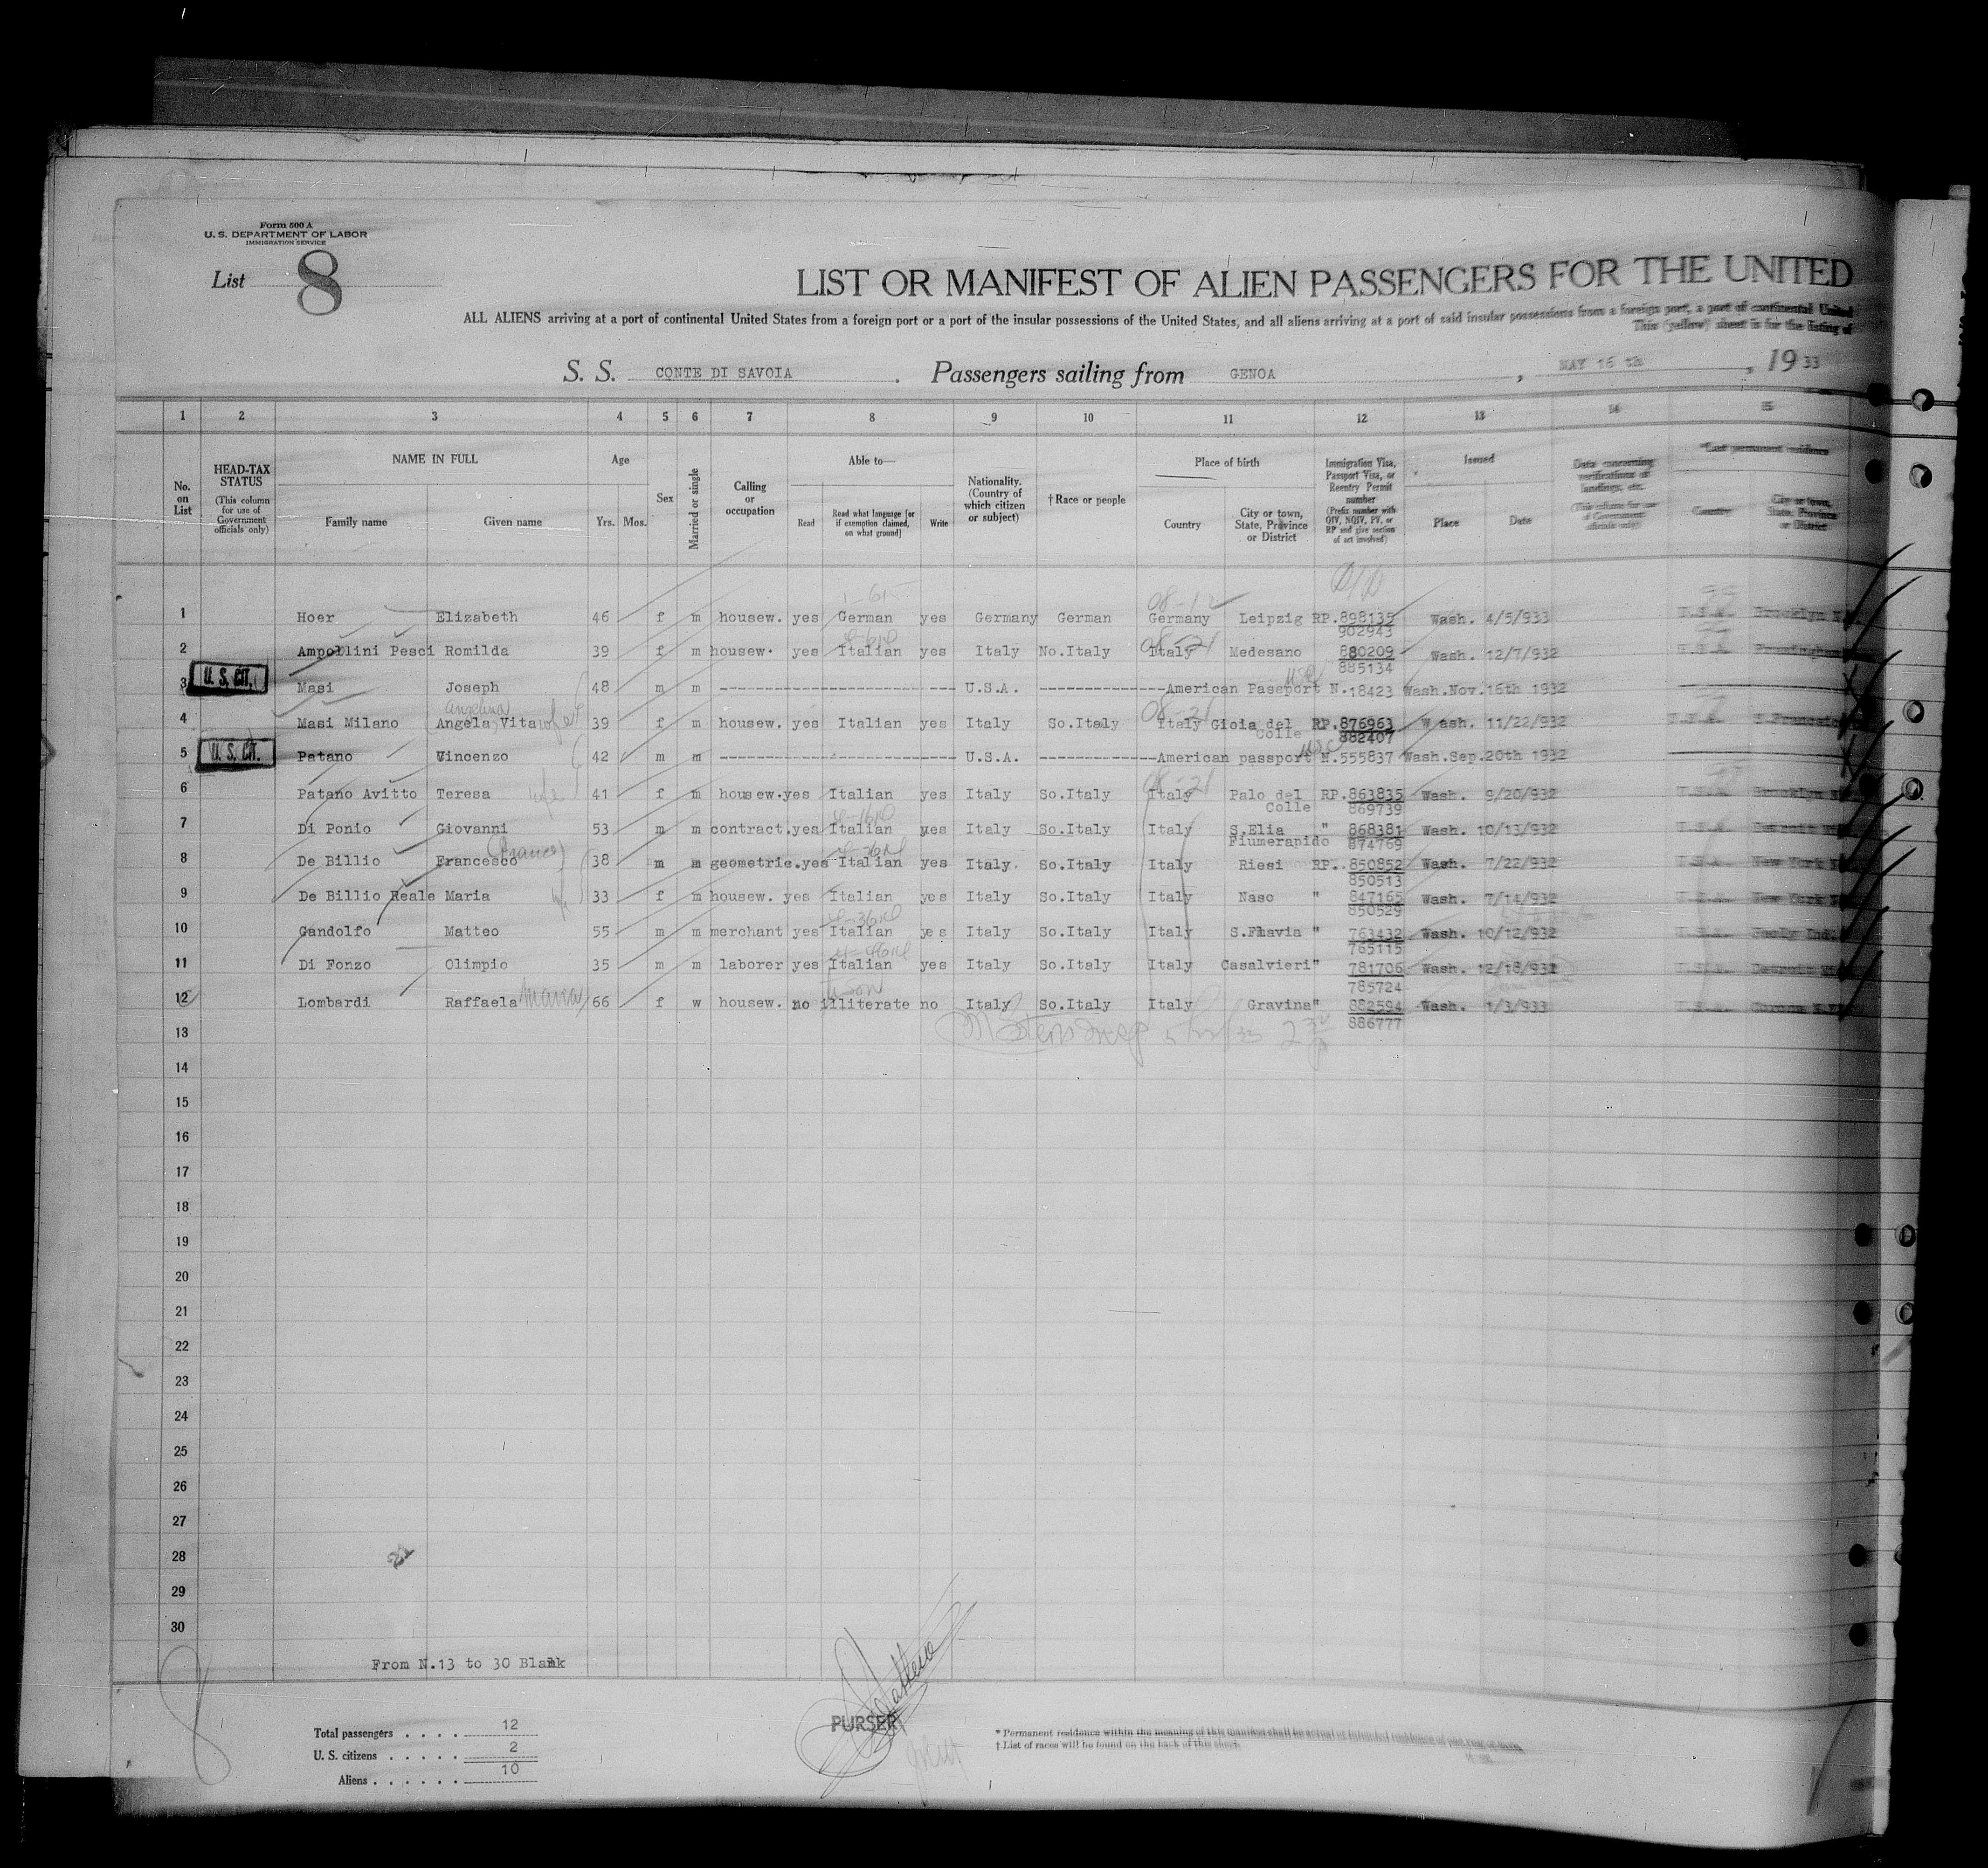 Form 500 A
U. S. DEPARTMENT OF LABOR
IMMIGRATION SERVICE
List 8
LIST OR MANIFEST OF ALIEN PASSENGERS FOR THE UNITED
ALL ALIENS arriving at a port of continental United States from a foreign port or a port of the insular possessions of the United States, and all aliens arriving at a port of said insular possessions from a foreign port, a port of continental United
This (yellow) sheet is for the listing of
S. S. CONTE DI SAVOIA . Passengers sailing from GENOA , MAY 16 th , 19 33
1 2 3 4 5 6 7 8 9 10 11 12 13 14 15
No. on List
HEAD-TAX STATUS (This column for use of Government officials only)
NAME IN FULL
Family name Given name
Age
Yrs. Mos.
Sex
Married or single
Calling or occupation
Able to—
Read
Read what language [or if exemption claimed, on what ground]
Write
Nationality. (Country of which citizen or subject)
†Race or people
Place of birth
Country
City or town, State, Province or District
Immigration Visa, Passport Visa, or Reentry Permit number (Prefix number with QIV, NQIV, PV, or RP and give section of act involved)
Issued
Place Date
Data concerning verifications of landings, etc. (This column for use of Government officials only)
*Last permanent residence
Country
City or town, State, Province or District
1 Hoer Elizabeth 46 f m housew. yes German yes Germany German Germany Leipzig RP.898135 Wash. 4/5/933 U.S.A. Brooklyn
902943
2 Ampollini Pesci Romilda 39 f m housew. yes Italian yes Italy No.Italy Italy Medesano 880209 Wash. 12/7/932 U.S.A.
885134
U. S. CIT.
3 Masi Joseph 48 m m ---- U.S.A. ---- American Passport N.18423 Wash.Nov.16th 1932
Angelina
4 Masi Milano Angela Vita wife 39 f m housew. yes Italian yes Italy So.Italy Italy Gioia del Colle RP.876963 Wash. 11/22/932 U.S.A.
882407
U. S. CIT.
5 Patano Vincenzo 42 m m ---- U.S.A. ---- American passport N.555837 Wash.Sep.20th 1932
6 Patano Avitto Teresa wife 41 f m housew.yes Italian yes Italy So.Italy Italy Palo del Colle RP.863835 Wash. 9/20/932 U.S.A. Brooklyn
869739
7 Di Ponio Giovanni 53 m m contract.yes Italian yes Italy So.Italy Italy S.Elia Fiumerapido " 868381 Wash. 10/13/932 U.S.A. Detroit
874769
(Franco)
8 De Billio Francesco 38 m m geometric.yes Italian yes Italy So.Italy Italy Riesi RP. 850852 Wash. 7/22/932 U.S.A. New York
850513
9 De Billio Reale Maria wife 33 f m housew. yes Italian yes Italy So.Italy Italy Naso " 847165 Wash. 7/14/932 U.S.A. New York
850529
10 Gandolfo Matteo 55 m m merchant yes Italian yes Italy So.Italy Italy S.Flavia " 763432 Wash. 10/12/932 U.S.A.
765115
11 Di Fonzo Olimpio 35 m m laborer yes Italian yes Italy So.Italy Italy Casalvieri" 781706 Wash. 12/18/931 U.S.A. Detroit
785724
12 Lombardi Raffaela Maria 66 f w housew. no illiterate no Italy So.Italy Italy Gravina" 882594 Wash. 1/3/933 U.S.A.
886777
13
14
15
16
17
18
19
20
21
22
23
24
25
26
27
28
29
30
From N.13 to 30 Blank
Total passengers . . . . . 12
U. S. citizens . . . . . 2
Aliens . . . . . . 10
PURSER
* Permanent residence within the meaning of this manifest shall be actual or intended residence of one year or more.
† List of races will be found on the back of this sheet.